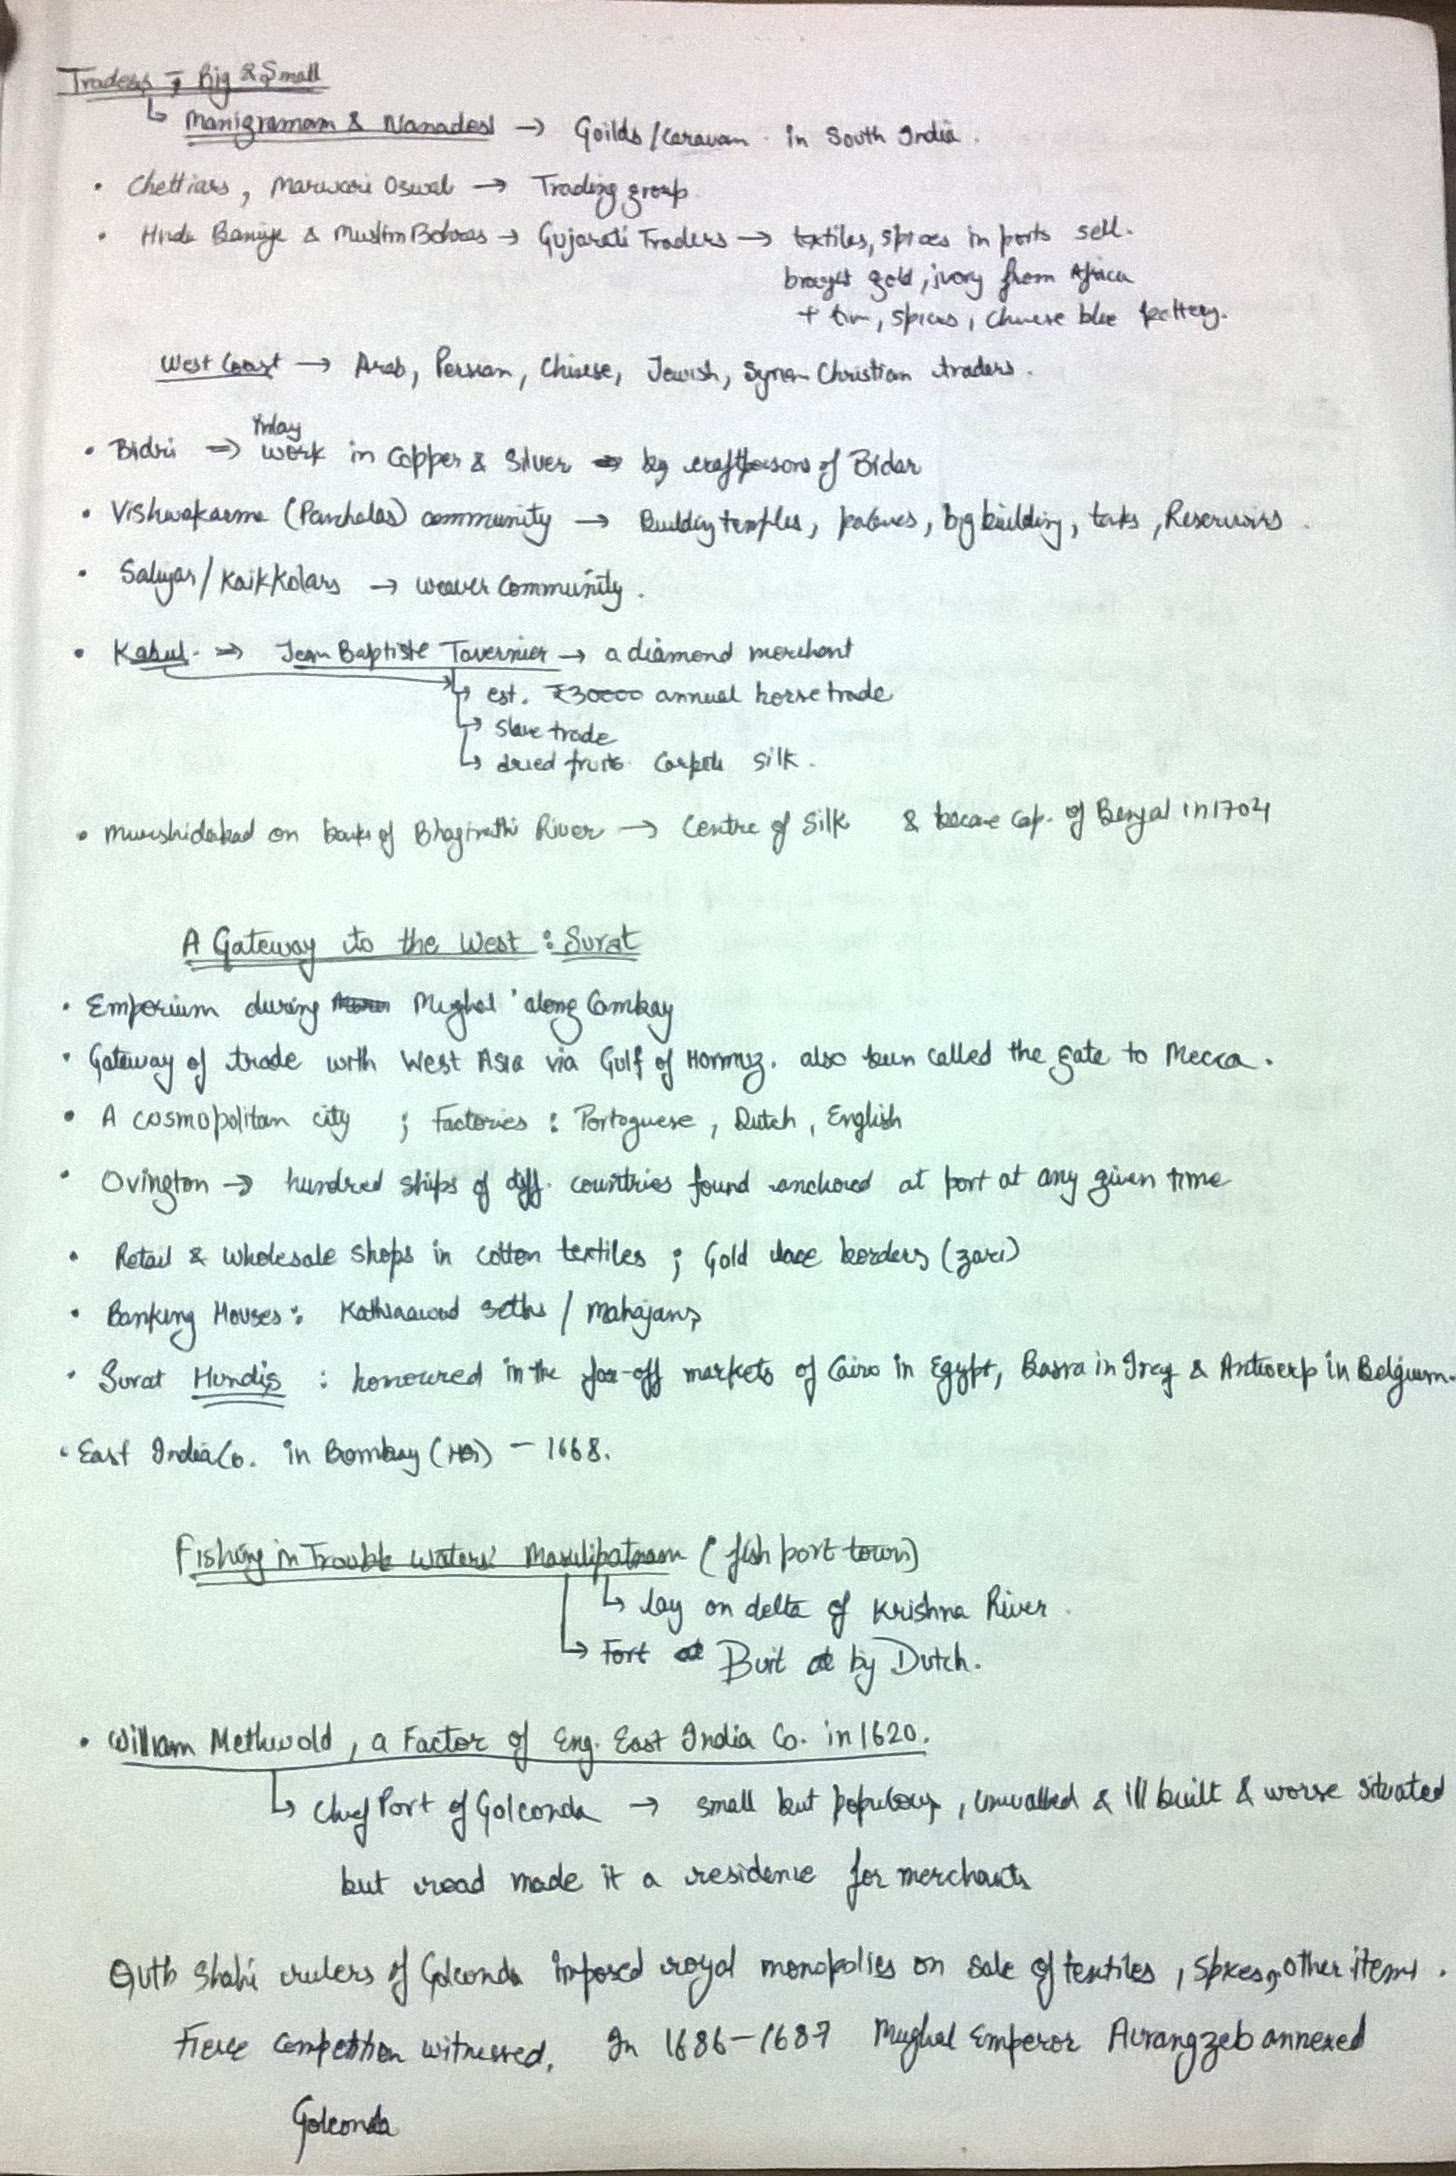 Traders, Big & Small
↳ Manigramam & Nanadesi → Goilds/Caravan in South India.
• Chettiars, Marwari Oswal → Trading group.
• Hindu Baniya & Muslim Bohras → Gujarati Traders → textiles, spices in ports sell.
brought gold, ivory from Africa
+ tin, spices, Chinese blue pottery.
West Coast → Arab, Persian, Chinese, Jewish, Syrian Christian traders.
Inlay
• Bidri ⇒ work in Copper & Silver → by craftpersons of Bidar
• Vishwakarma (Panchalas) community → Building temples, palaces, big building, tanks, Reservoirs.
• Saliyar/Kaikkolars → weaver Community.
• Kabul ⇒ Jean Baptiste Tavernier → a diamond merchant
↳ est. ₹30000 annual horse trade
↳ Slave trade
↳ dried fruits carpets silk.
• Murshidabad on banks of Bhagirathi River → Centre of Silk & became Cap. of Bengal in 1704
A Gateway to the West : Surat
• Emporium during Mughal along Cambay
• Gateway of trade with West Asia via Gulf of Hormuz. also been called the gate to Mecca.
• A cosmopolitan city ; Factories : Portoguese, Dutch, English
• Ovington → hundred ships of diff. countries found anchored at port at any given time
• Retail & wholesale shops in cotton textiles ; Gold lace borders (zari)
• Banking Houses: Kathiawad Seths / Mahajans
• Surat Hundis : honoured in the far-off markets of Cairo in Egypt, Basra in Iraq & Antwerp in Belgium.
• East India Co. in Bombay (HQ) – 1668.
Fishing in Trouble Waters: Masulipatnam (fish port town)
↳ lay on delta of Krishna River.
↳ Fort Buit by Dutch.
• William Methwold, a Factor of Eng. East India Co. in 1620.
↳ Chief Port of Golconda → small but populous, Unwalled & Ill built & worse situated
but road made it a residence for merchants
Qutb Shahi rulers of Golconda imposed royal monopolies on Sale of textiles, Spices, other items.
Fierce competition witnessed. In 1686–1687 Mughal Emperor Aurangzeb annexed
Golconda